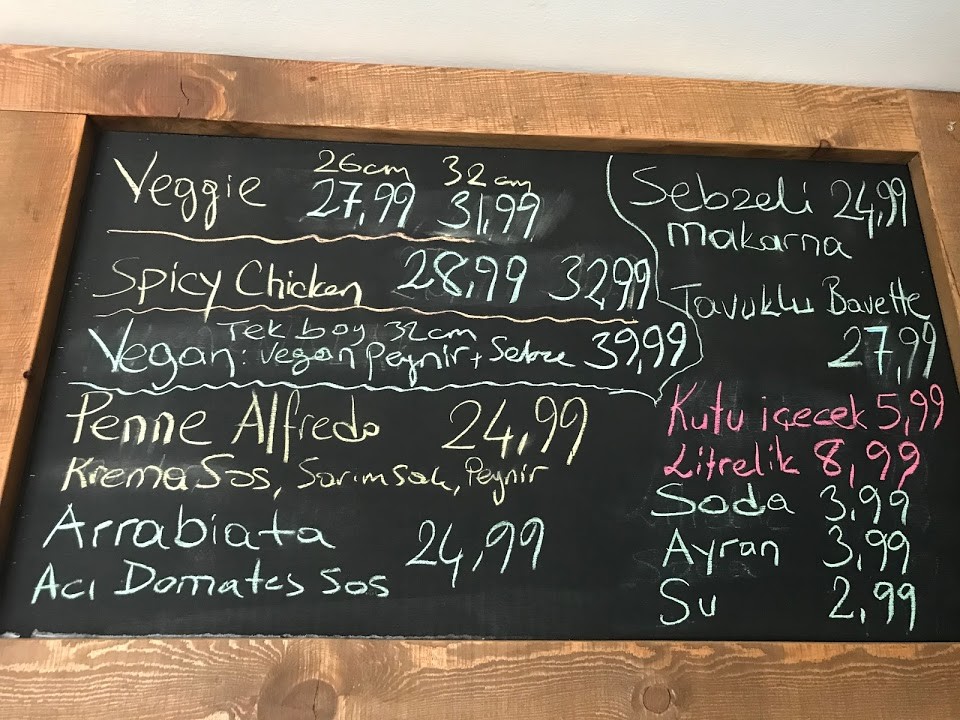 26cm 32cm
Veggie 27,99 31,99
Spicy Chicken 28,99 32,99
Tek boy 32cm
Vegan: Vegan Peynir + Sebze 39,99
Penne Alfredo 24,99
Krema Sos, Sarımsak, Peynir
Arrabiata 24,99
Acı Domates Sos
Sebzeli 24,99
makarna
Tavuklu Bavette
27,99
Kutu içecek 5,99
Litrelik 8,99
Soda 3,99
Ayran 3,99
Su 2,99